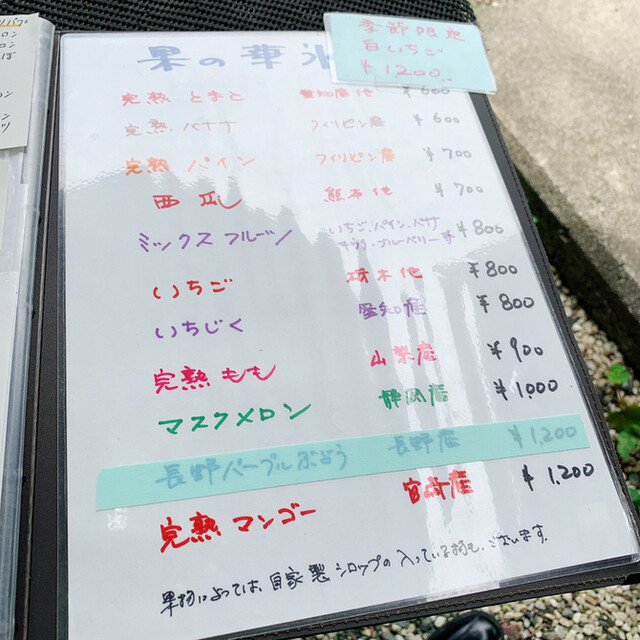 季節限定
白いちご
¥1200
果の華氷
完熟 とまと 愛知産他 ¥600
完熟 バナナ フィリピン産 ¥600
完熟 パイン フィリピン産 ¥700
西瓜 熊本他 ¥700
ミックスフルーツ いちご・パイン・バナナ キウイ・ブルーベリー等 ¥800
いちご 栃木他 ¥800
いちじく 愛知産 ¥800
完熟 もも 山梨産 ¥900
マスクメロン 静岡産 ¥1,000
長野パープルぶどう 長野産 ¥1,200
完熟 マンゴー 宮崎産 ¥1,200
果物によっては、自家製シロップの入っている物も、ございます。